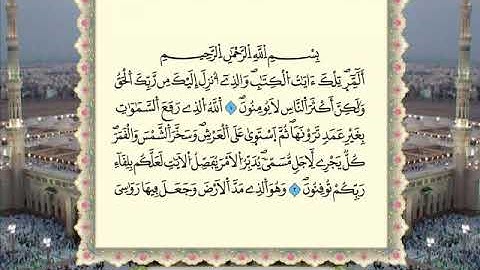 بِسْمِ اللَّهِ الرَّحْمَٰنِ الرَّحِيمِ
أَلَٓمِّٓرۖ تِلْكَ ءَايَٰتُ اُ۬لْكِتَٰبِۖ وَالذِےٓ أُنزِلَ إِلَيْكَ مِن رَّبِّكَ اَ۬لْحَقُّ
وَلَٰكِنَّ أَكْثَرَ اَ۬لنَّاسِ لَا يُومِنُونَۖ ١ اَ۬للَّهُ اُ۬لذِے رَفَعَ اَ۬لسَّمَٰوَٰتِ
بِغَيْرِ عَمَدٖ تَرَوْنَهَاۖ ثُمَّ اَ۪سْتَوَىٰ عَلَى اَ۬لْعَرْشِۖ وَسَخَّرَ اَ۬لشَّمْسَ وَالْقَمَرَۖ
كُلّٞ يَجْرِے لِأَجَلٖ مُّسَمّٗىۖ يُدَبِّرُ اُ۬لَامْرَۖ يُفَصِّلُ اُ۬لَايَٰتِ لَعَلَّكُم بِلِقَآءِ
رَبِّكُمْ تُوقِنُونَۖ ٢ وَهُوَ اَ۬لذِے مَدَّ اَ۬لَارْضَ وَجَعَلَ فِيهَا رَوَٰسِيَ